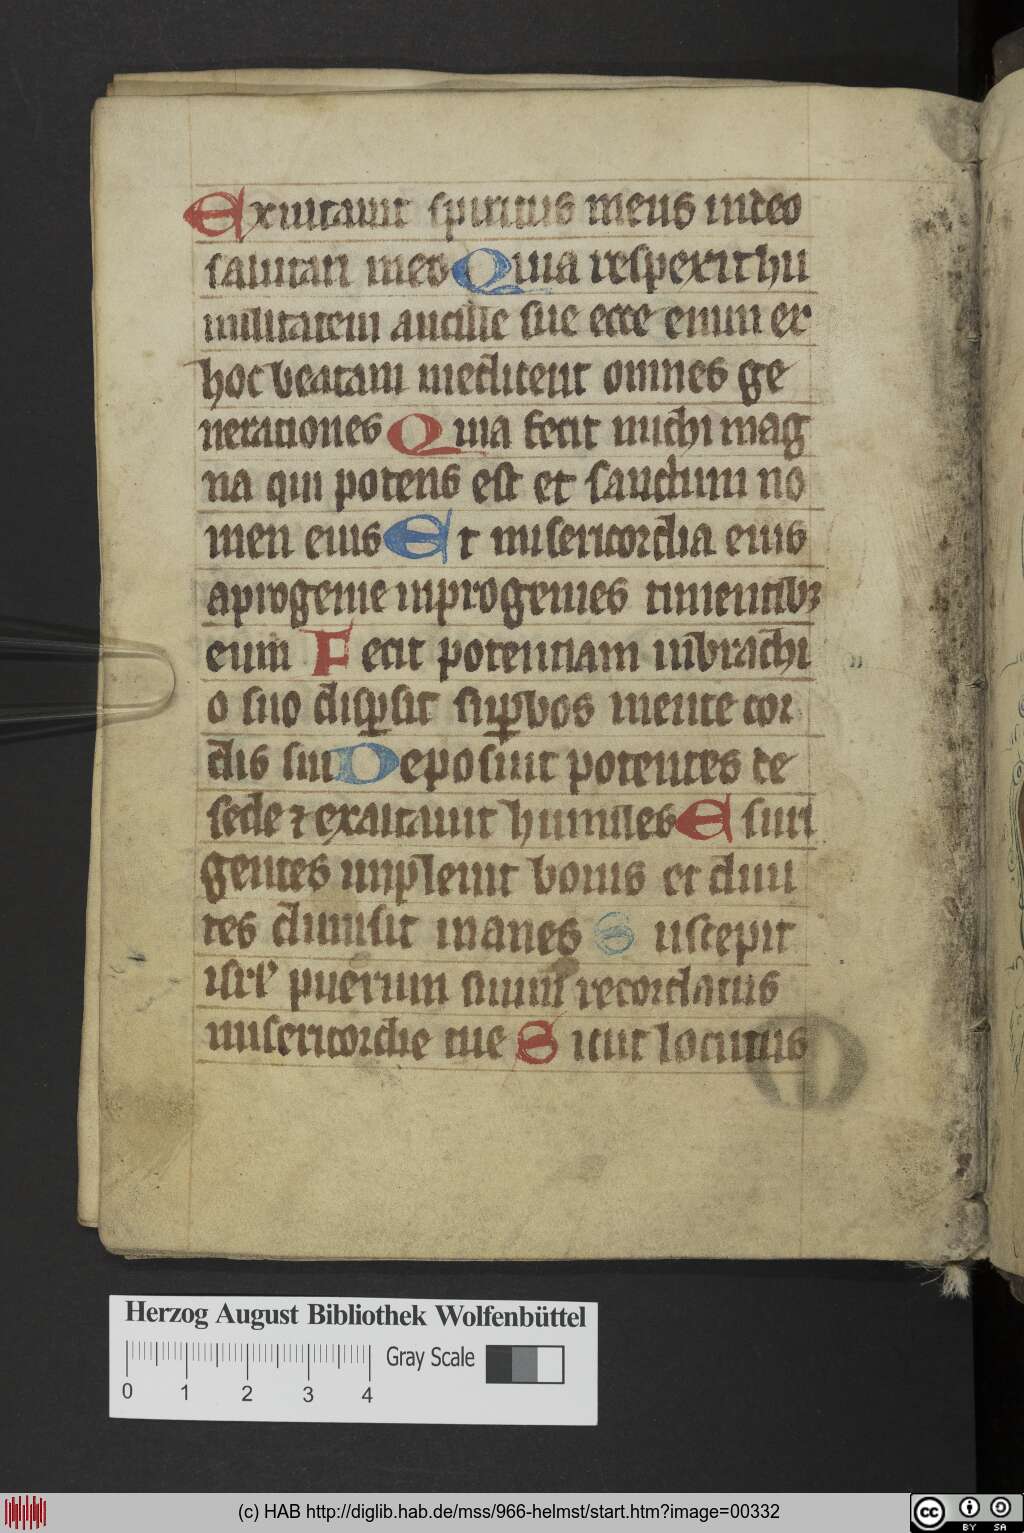 Exultauit spiritus meus in deo
salutari meo Quia respexit hu
militatem ancille sue ecce enim ex
hoc beatam me dicent omnes ge
nerationes Quia fecit michi mag
na qui potens est et sanctum no
men eius Et misericordia eius
a progenie in progenies timentibꝫ
eum Fecit potentiam in brachi
o suo disꝑsit suꝑbos mente cor
dis sui Deposuit potentes de
sede ⁊ exaltauit humiles Esuri
entes impleuit bonis et diui
tes dimisit inanes Suscepit
isrl' puerum suum recordatus
misericordie sue Sicut locutus
Herzog August Bibliothek Wolfenbüttel
0 1 2 3 4 Gray Scale
(c) HAB http://diglib.hab.de/mss/966-helmst/start.htm?image=00332
cc BY SA